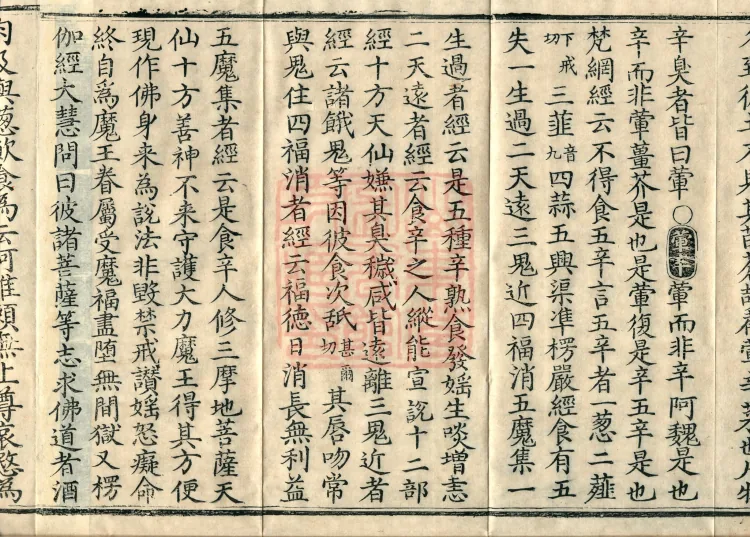 辛臭者皆曰葷〇葷辛葷而非辛阿魏是也
辛而非葷薑芥是也是葷復是辛五辛是也
梵網經云不得食五辛言五辛者一葱二薤
下戒切三韮音九四蒜五興渠準楞嚴經食有五
失一生過二天遠三鬼近四福消五魔集一
生過者經云是五種辛熟食發婬生啖增恚
二天遠者經云食辛之人縱能宣說十二部
經十方天仙嫌其臭穢咸皆遠離三鬼近者
經云諸餓鬼等因彼食次舐甚爾切其唇吻常
與鬼住四福消者經云福德日消長無利益
五魔集者經云是食辛人修三摩地菩薩天
仙十方善神不来守護大力魔王得其方便
現作佛身来為說法非毀禁戒讃婬怒癡命
終自為魔王眷屬受魔福盡墮無間獄又楞
伽經大慧問曰彼諸菩薩等志求佛道者酒
肉及與葱飲食為云何惟願無上尊哀愍為